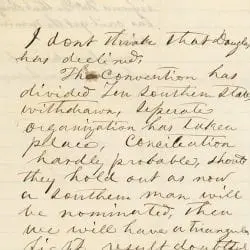 I dont think that Douglas
has declined.
The Convention has
divided Ten Southern State
withdrawn, Seperate
organization has taken
place, Conciliation
hardly probable, should
they hold out as now
a southern man will
be nominated, then
we will have a triangu
fight result doubt